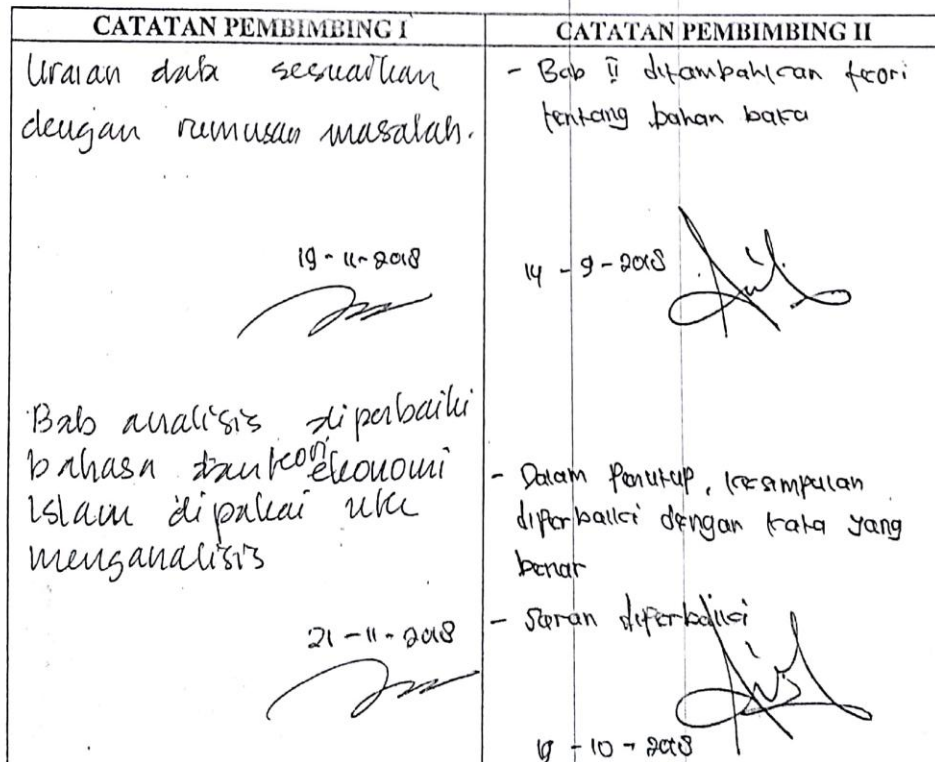 CATATAN PEMBIMBING I
Uraian data sesuaikan
dengan rumusan masalah.
19-11-2018
Bab analisis diperbaiki
bahasa dan teori ekonomi
Islam dipakai utk
menganalisis
21-11-2018
CATATAN PEMBIMBING II
- Bab II ditambahkan teori
tentang bahan baku
14-9-2018
- Dalam Penutup, kesimpulan
diperbaiki dengan kata yang
benar
- Saran diperbaiki
19-10-2018